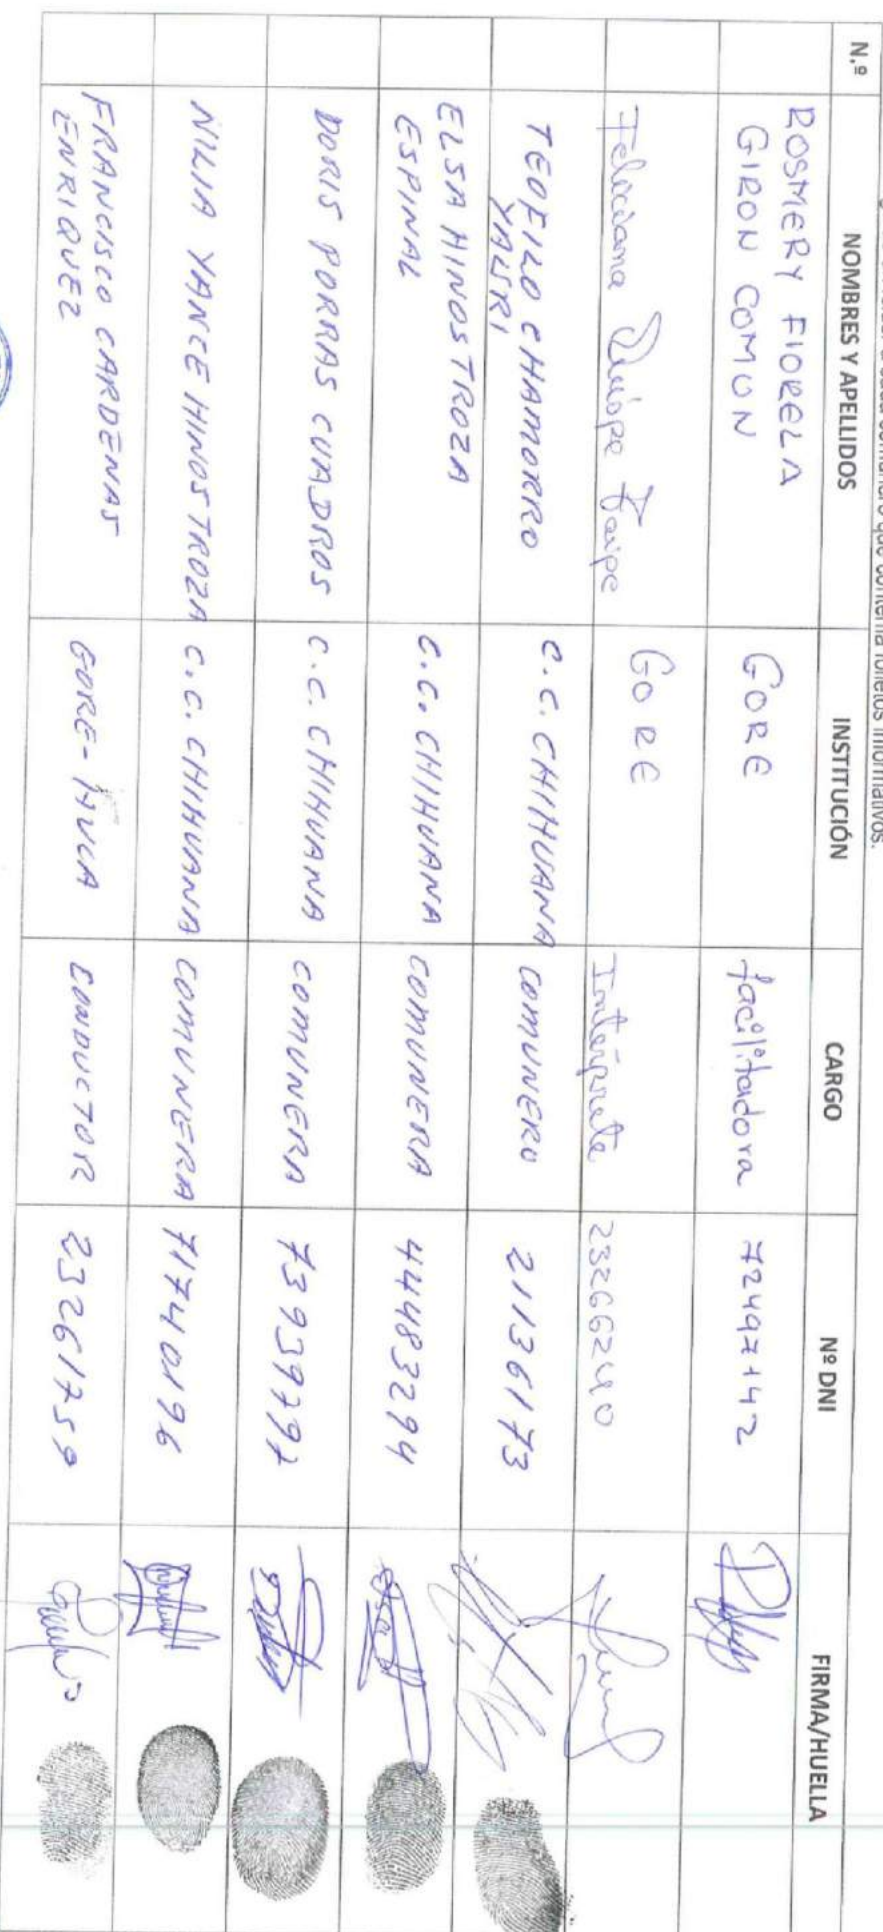 que contenía folletos informativos.
N.º NOMBRES Y APELLIDOS INSTITUCIÓN CARGO Nº DNI FIRMA/HUELLA
ROSMERY FIORELA
GIRON COMUN GORE facilitadora 72497142
Feliciana Quispe Taipe GORE Intérprete 23266240
TEOFILO CHAMORRO
YAURI C.C. CHIHUANA COMUNERO 21136173
ELSA HINOSTROZA
ESPINAL C.C. CHIHUANA COMUNERA 44483294
DORIS PORRAS CUADROS C.C. CHIHUANA COMUNERA 73939797
NILIA YANCE HINOSTROZA C.C. CHIHUANA COMUNERA 71740196
FRANCISCO CARDENAS
ENRIQUEZ GORE-HVCA CONDUCTOR 23261759